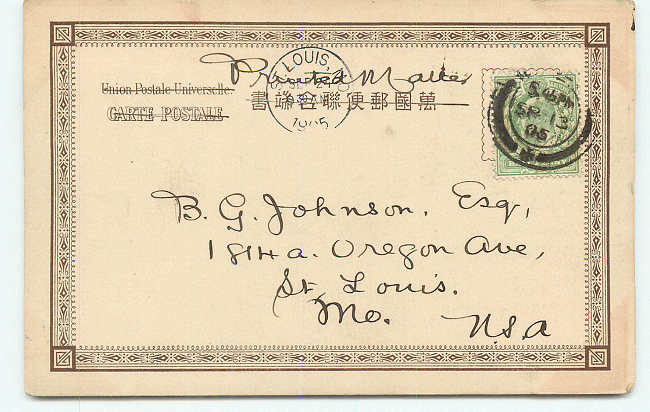 Printed Matter
Union Postale Universelle.
CARTE POSTALE
書端合聯便郵國萬
ST. LOUIS, MO.
1905
SP 13
05
B. G. Johnson, Esq,
1814a. Oregon Ave,
St. Louis.
Mo. USA